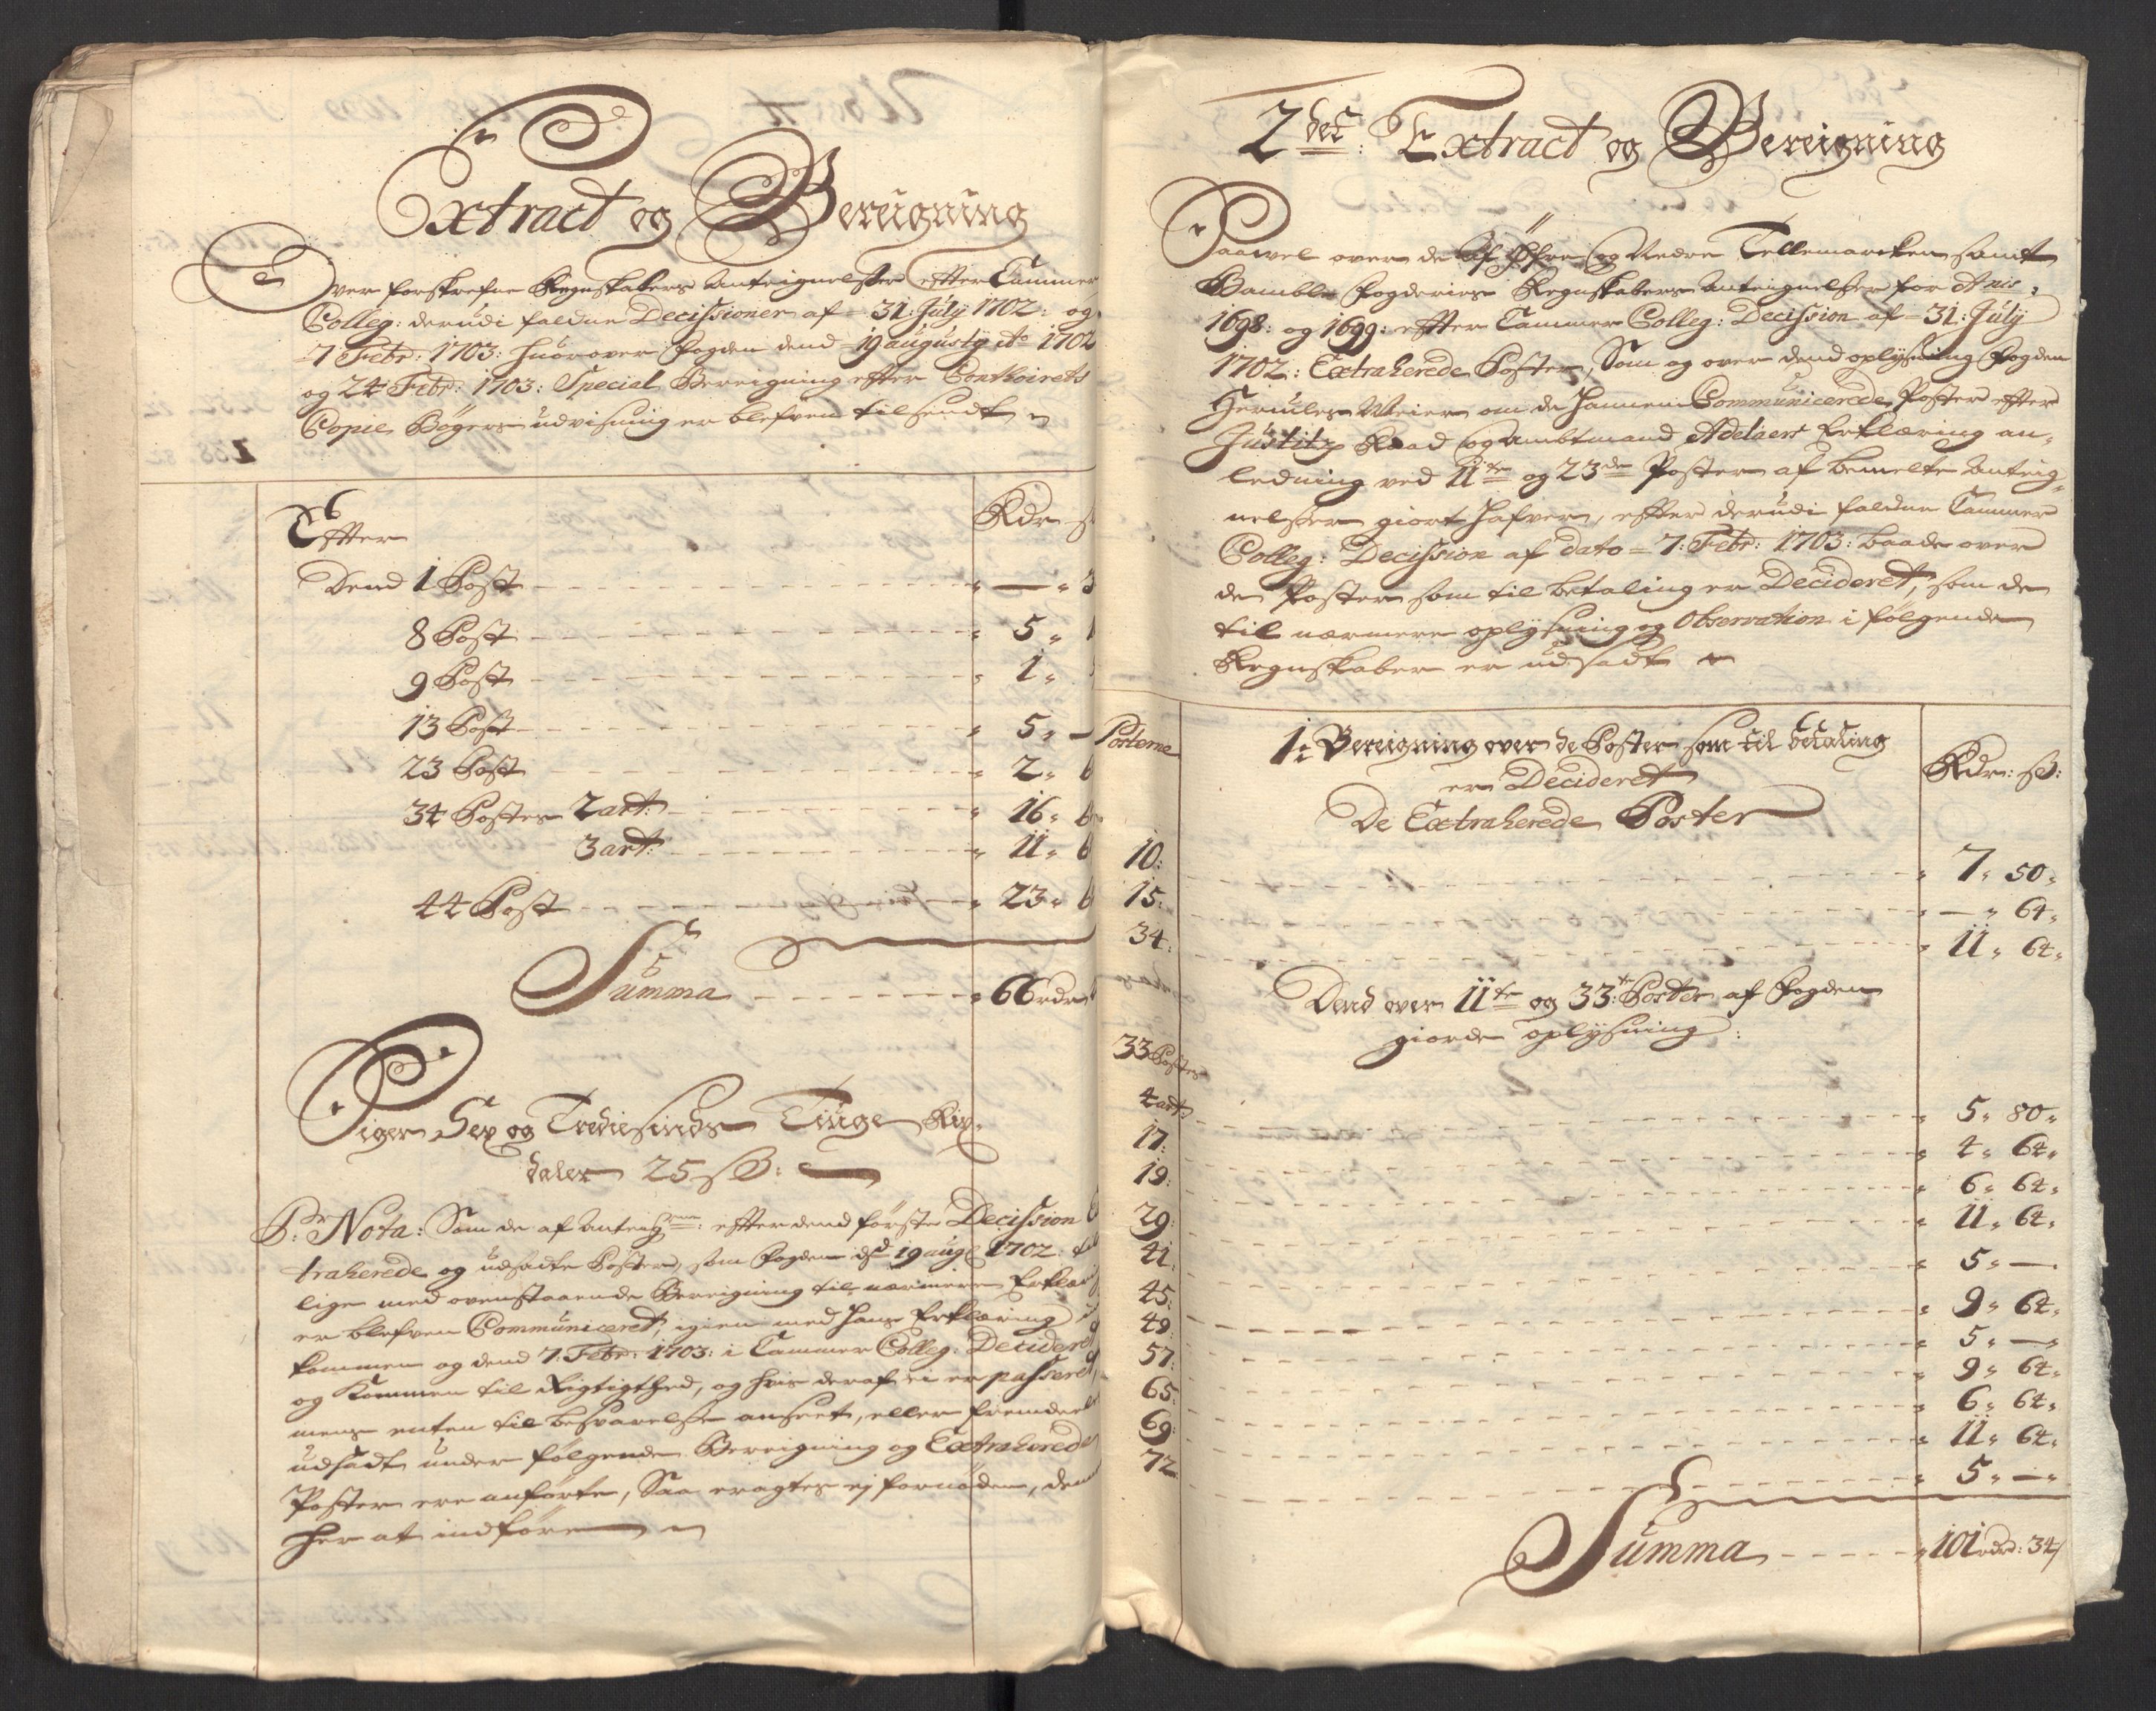 Extract og Bereigning
Over forskrefne Regnskabers Anteignelser effter Cammer
Colleg: derudi faldne Decissioner af 31: July 1702: og
7 Febr: 1703: huorover Fogden dend 19 augusty Ao 1702
og 24 Febr: 1703: Special Bereigning effter Conthoirets
Copie Bøgers udvisning er blefven tilsendt
Effter
Rdr
Dend 1 Post — 3
8 Post 5
9 Post 1
13 Post 5 —
23 Post 2 6
34 Poster 2 art: 16 6
3 art: 11 6
44 Post 23 6
Summa 66 rdr
Siger Sex og Trediesinds Tiuge Rix
daler 25 sβ:
P: Nota: Som de af Anteig: effter dend første Decission
traherede og udsadte Poster, som Fogden d 19 aug 1702:
lige med ovenstaaende Bereigning til nærmere Erklæring
er blefven Communiceret, igien med hans Erklæring
kommen og dend 7: Febr: 1703: i Cammer Colleg: Decideret
og kommen til Rigtigthed, og hvis deraf ei er passeret,
mens enten til besvarelse anseet, eller fremdeeles
udsadt under følgende Bereigning og Extraherede
Poster ere anførte, Saa eragtes ej fornøden, denne
her at indføre
2det: Extract og Bereigning
Saavel over de af Øfre og Nedre Tellemarcken samt
Bamble Fogderies Regnskabers Antegnelser for Anis
1698: og 1699: effter Cammer Colleg: Decission af 31: July
1702: Extraherede Poster, Som og over dend oplysning Fogden
Hercules Weier om de hannem Communicerede Poster effter
Justitz Raad og Ambtmand Adelaers Erklæring an-
ledning ved 11te og 23de Poster af bemelte Anteig-
nelser giort hafver, effter derudi faldne Cammer
Colleg: Decission af dato 7: Febr: 1703: baade over
de Poster som til betaling er Decideret, som de
til nærmere oplysning og Observation i følgende
Regnskaber er udsadt
Posterne
1: Bereigning over de Poster som til betaling
er Decideret
Rdr: sβ:
De Extraherede Poster
10: 7 50
15: — 64
34: 11 64
Dend over 11te og 33te Poster af Fogden
giorde oplysning:
33 Postes
4 art: 5 80
17: 4 64
19: 6 64
29: 11 64
41: 5 —
45: 9 64
49: 5 —
57: 9 64
65: 6 64
69: 11 64
72: 5 —
Summa 101 rdr: 34